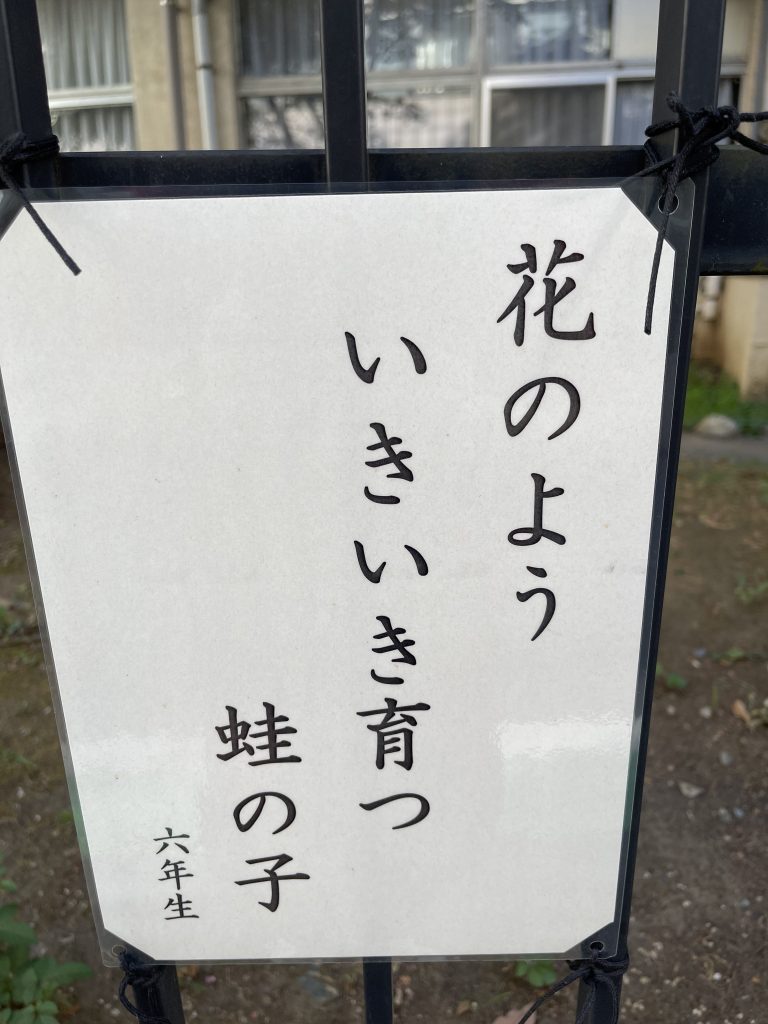 花のよう
いきいき育つ
蛙の子
六年生